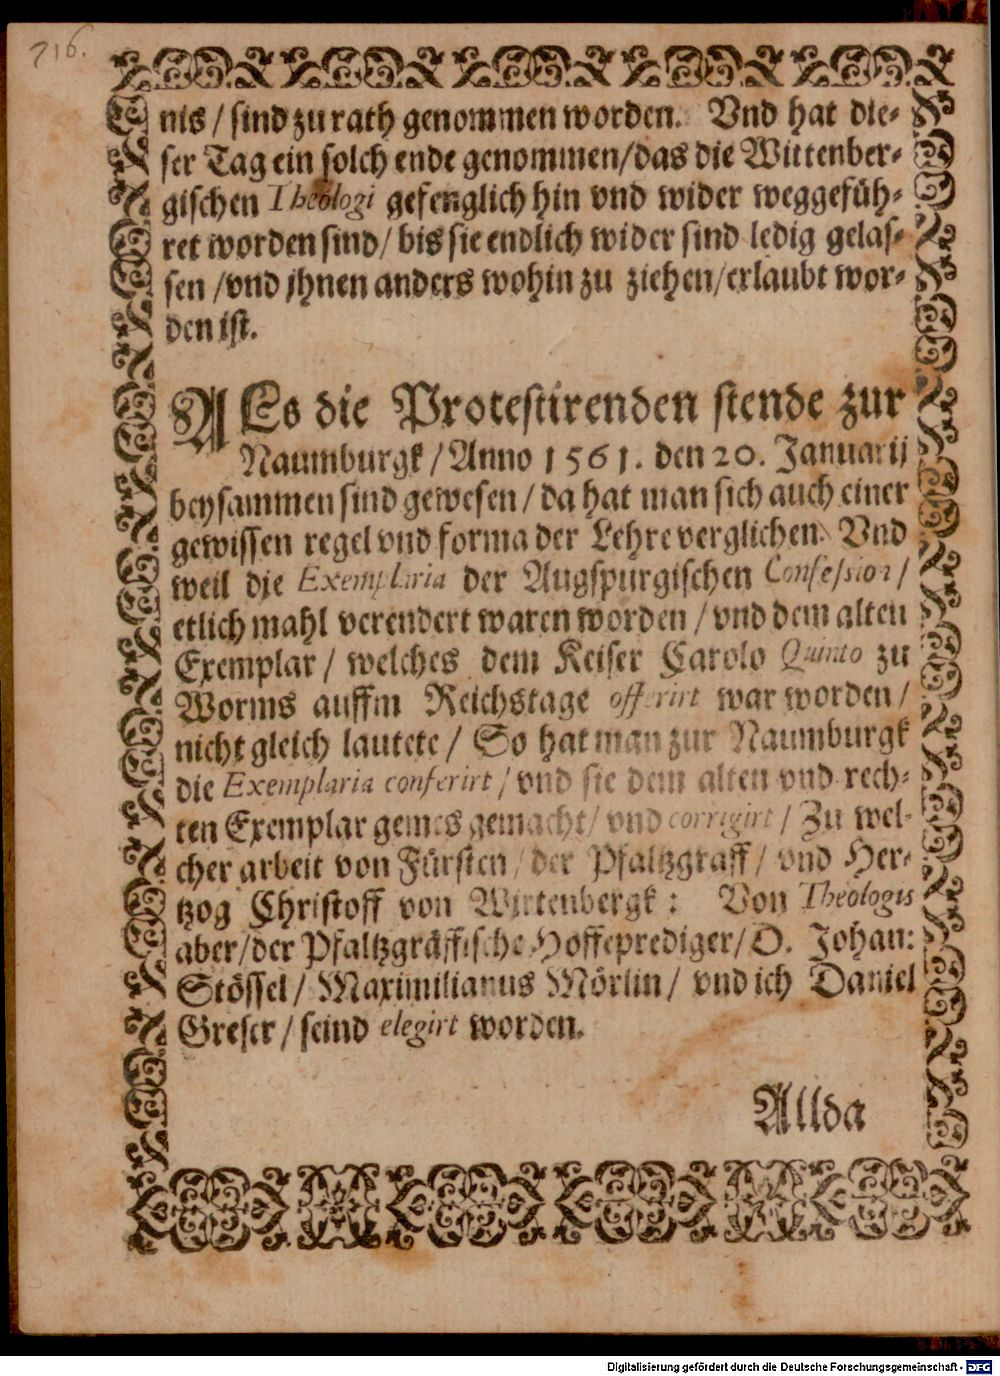 716.
nis / sind zu rath genommen worden. Vnd hat die-
ser Tag ein solch ende genommen/das die Wittenber-
gischen Theologi gefenglich hin vnd wider weggefüh-
ret worden sind/ bis sie endlich wider sind ledig gelas-
sen /vnd jhnen anders wohin zu ziehen/erlaubt wor-
den ist.
ALs die Protestirenden stende zur
Naumburgk /Anno 1561. den 20. Januarij
beysammen sind gewesen / da hat man sich auch einer
gewissen regel vnd forma der Lehre verglichen. Vnd
weil die Exemplaria der Augspurgischen Confession /
etlich mahl verendert waren worden / vnd dem alten
Exemplar / welches dem Keiser Carolo Quinto zu
Worms auffm Reichstage offerirt war worden /
nicht gleich lautete / So hat man zur Naumburgk
die Exemplaria conferirt / vnd sie dem alten vnd rech-
ten Exemplar gemes gemacht/ vnd corrigirt / Zu wel-
cher arbeit von Fürsten / der Pfaltzgraff / vnd Her-
tzog Christoff von Wirtenbergk : Von Theologis
aber/der Pfaltzgräffische Hoffeprediger/ D. Johan:
Stössel / Maximilianus Mörlin / vnd ich Daniel
Greser / seind elegirt worden.
Allda
Digitalisierung gefördert durch die Deutsche Forschungsgemeinschaft - DFG